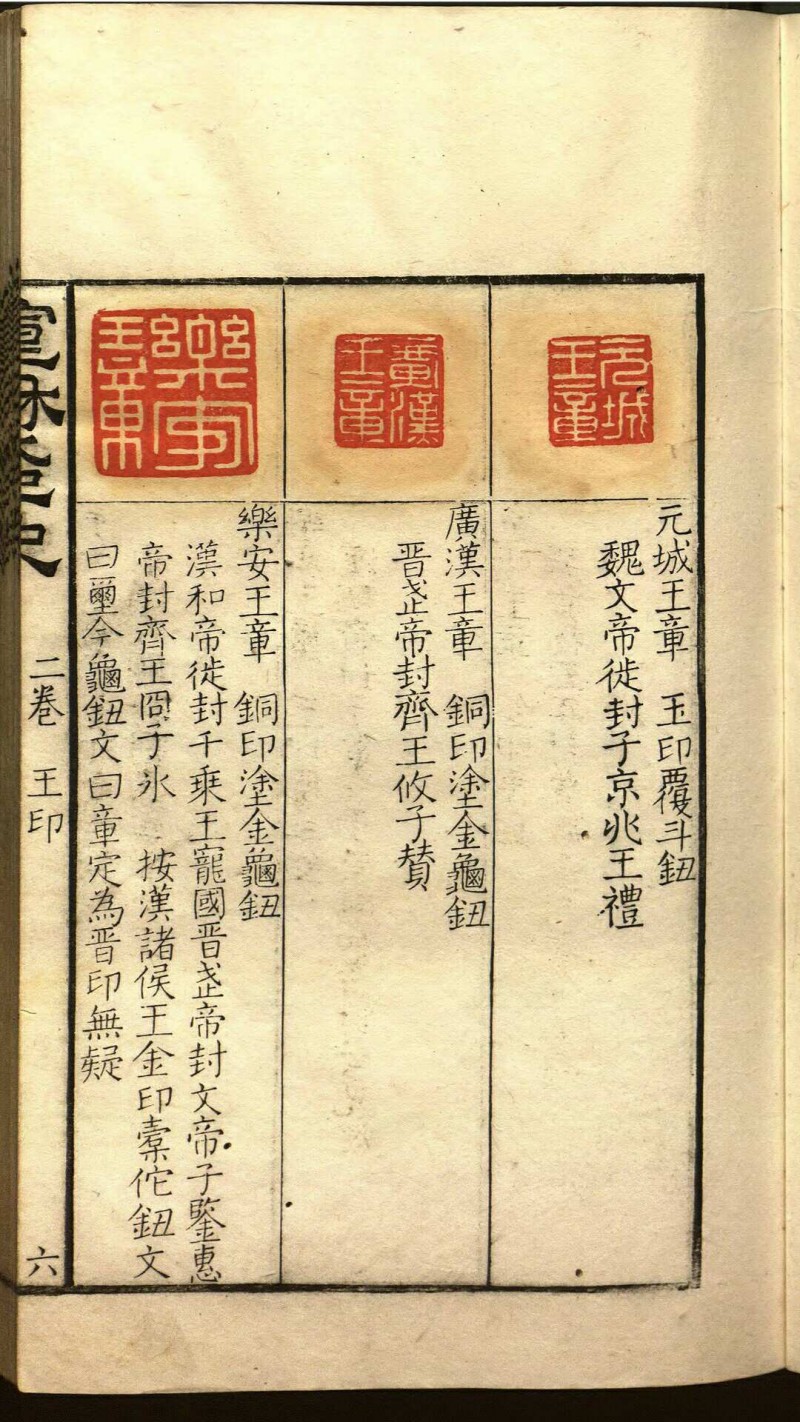 元城王章
元城王章　玉印覆斗鈕
魏文帝徙封子京兆王禮
廣漢王章
廣漢王章　銅印塗金龜鈕
晉武帝封齊王攸子贊
樂安王章
樂安王章　銅印塗金龜鈕
漢和帝徙封千乘王寵國晉武帝封文帝子鑒惠
帝封齊王冏子冰　按漢諸侯王金印橐佗鈕文
曰璽今龜鈕文曰章定為晉印無疑
二卷　王印　六